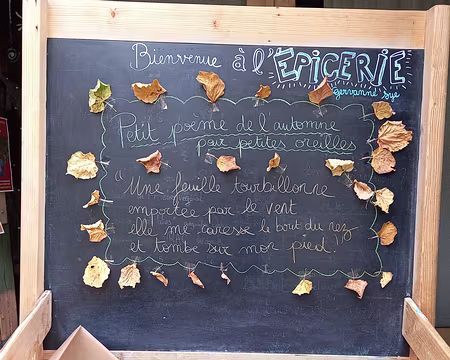 Bienvenue à l'ÉPICERIE
gervanne sye
Petit poème de l'automne
par petites oreilles
"Une feuille tourbillonne
emportée par le vent
elle me caresse le bout du nez
et tombe sur mon pied."